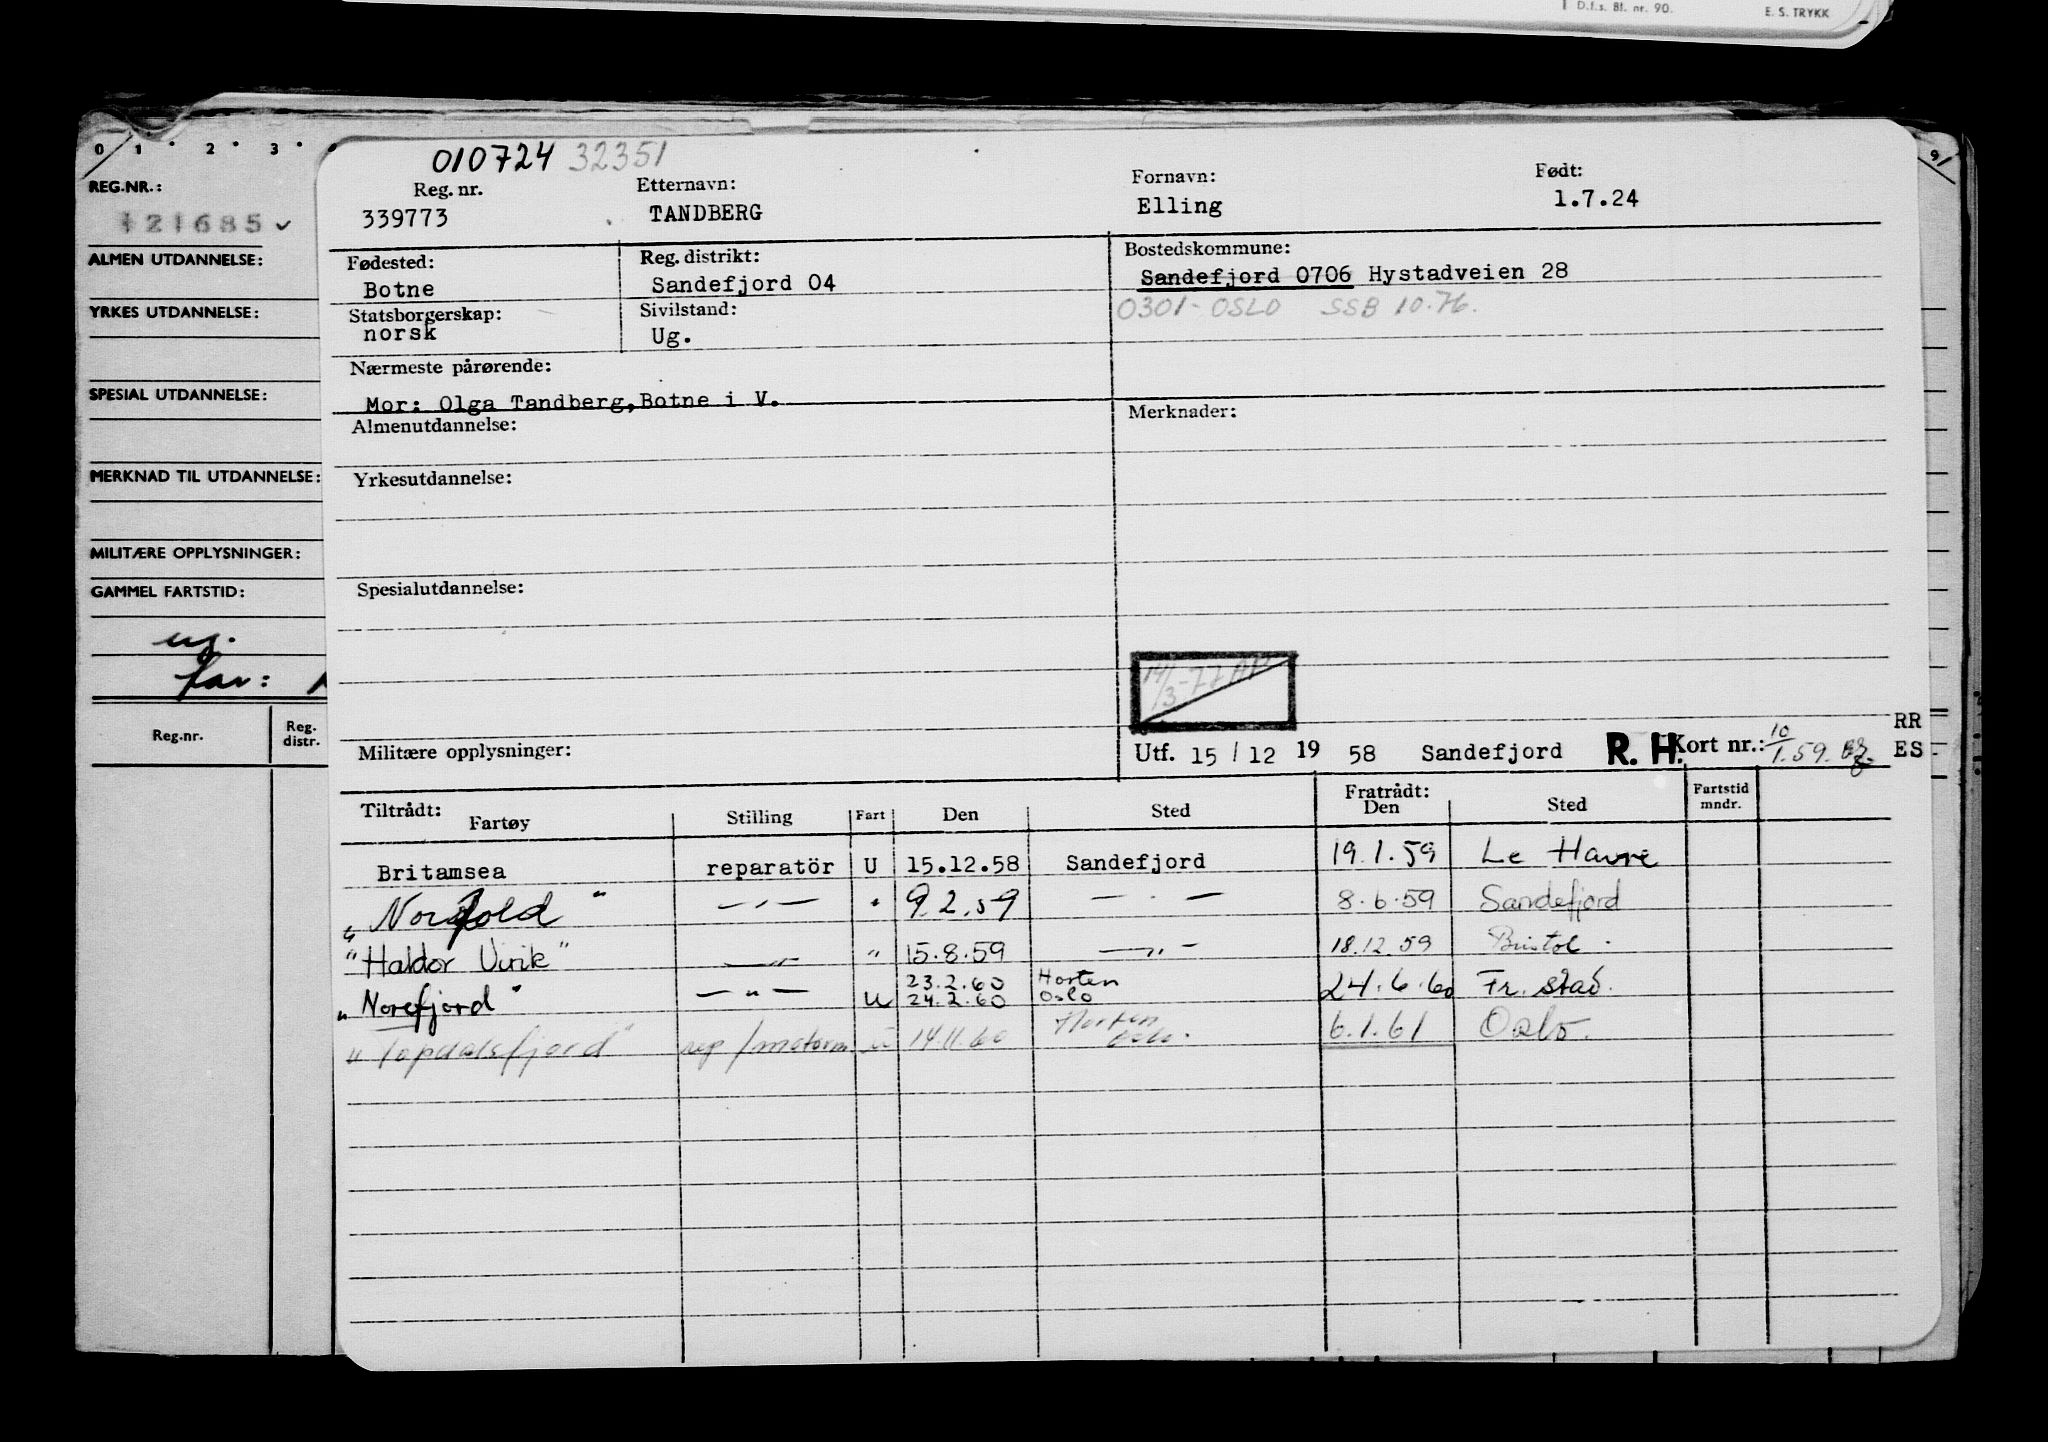 D.f.s. Bl. nr. 90. E. S. TRYKK
0 1 2 3 9
REG.NR.:
121685
ALMEN UTDANNELSE:
YRKES UTDANNELSE:
SPESIAL UTDANNELSE:
MERKNAD TIL UTDANNELSE:
MILITÆRE OPPLYSNINGER:
GAMMEL FARTSTID:
ug.
far:
Reg.nr. Reg. distr.
010724 32351
Reg. nr. Etternavn: Fornavn: Født:
339773 TANDBERG Elling 1.7.24
Fødested: Reg. distrikt: Bostedskommune:
Botne Sandefjord 04 Sandefjord 0706 Hystadveien 28
Statsborgerskap: Sivilstand: 0301 - OSLO SSB 10.76.
norsk Ug.
Nærmeste pårørende:
Mor: Olga Tandberg, Botne i V.
Almenutdannelse: Merknader:
Yrkesutdannelse:
Spesialutdannelse:
14/3-77
Militære opplysninger: Utf. 15 / 12 19 58 Sandefjord R. H. Kort nr.: 10/1.59. RR ES
Tiltrådt: Fartøy Stilling Fart Den Sted Fratrådt: Den Sted Fartstid mndr.
Britamsea reparatör U 15.12.58 Sandefjord 19.1.59 Le Havre
"Norfold" — " — " 9.2.59 — " — 8.6.59 Sandefjord
"Haldor Virik" — " — " 15.8.59 — " — 18.12.59 Bristol
23.2.60 Horten
"Norefjord" — " — U 24.2.60 Oslo 24.6.60 Fr. stad.
"Topdalsfjord" rep/motorm. U 14.11.60 Horten Oslo. 6.1.61 Oslo.